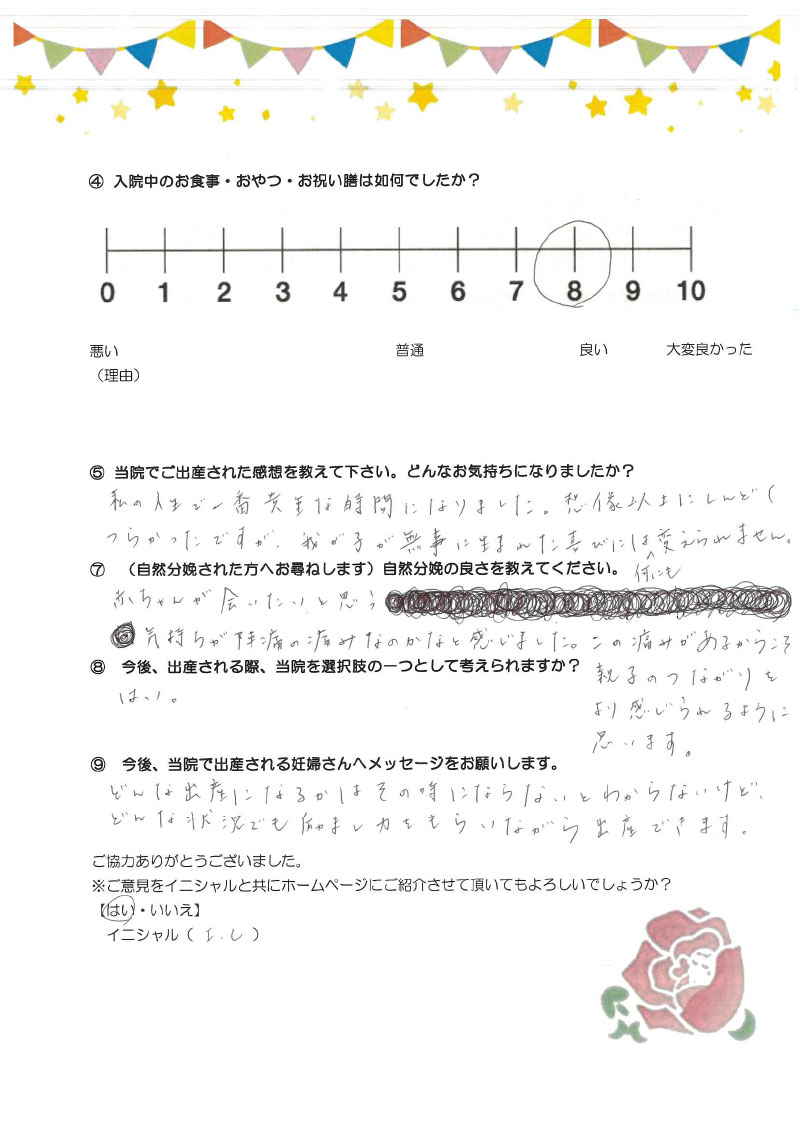 ④ 入院中のお食事・おやつ・お祝い膳は如何でしたか？
0 1 2 3 4 5 6 7 8 9 10
悪い 普通 良い 大変良かった
（理由）
⑤ 当院でご出産された感想を教えて下さい。どんなお気持ちになりましたか？
私の人生で一番貴重な時間になりました。想像以上にしんどく
つらかったですが、我が子が無事に生まれた喜びには何にも変えられません。
⑦ （自然分娩された方へお尋ねします）自然分娩の良さを教えてください。
赤ちゃんが会いたいと思う
気持ちが陣痛の痛みなのかなと感じました。この痛みがあるからこそ
親子のつながりを
より感じられるように
思います。
⑧ 今後、出産される際、当院を選択肢の一つとして考えられますか？
はい。
⑨ 今後、当院で出産される妊婦さんへメッセージをお願いします。
どんな出産になるかはその時にならないとわからないけど、
どんな状況でも励まし力をもらいながら出産できます。
ご協力ありがとうございました。
※ご意見をイニシャルと共にホームページにご紹介させて頂いてもよろしいでしょうか？
【はい・いいえ】
イニシャル（ I.U ）